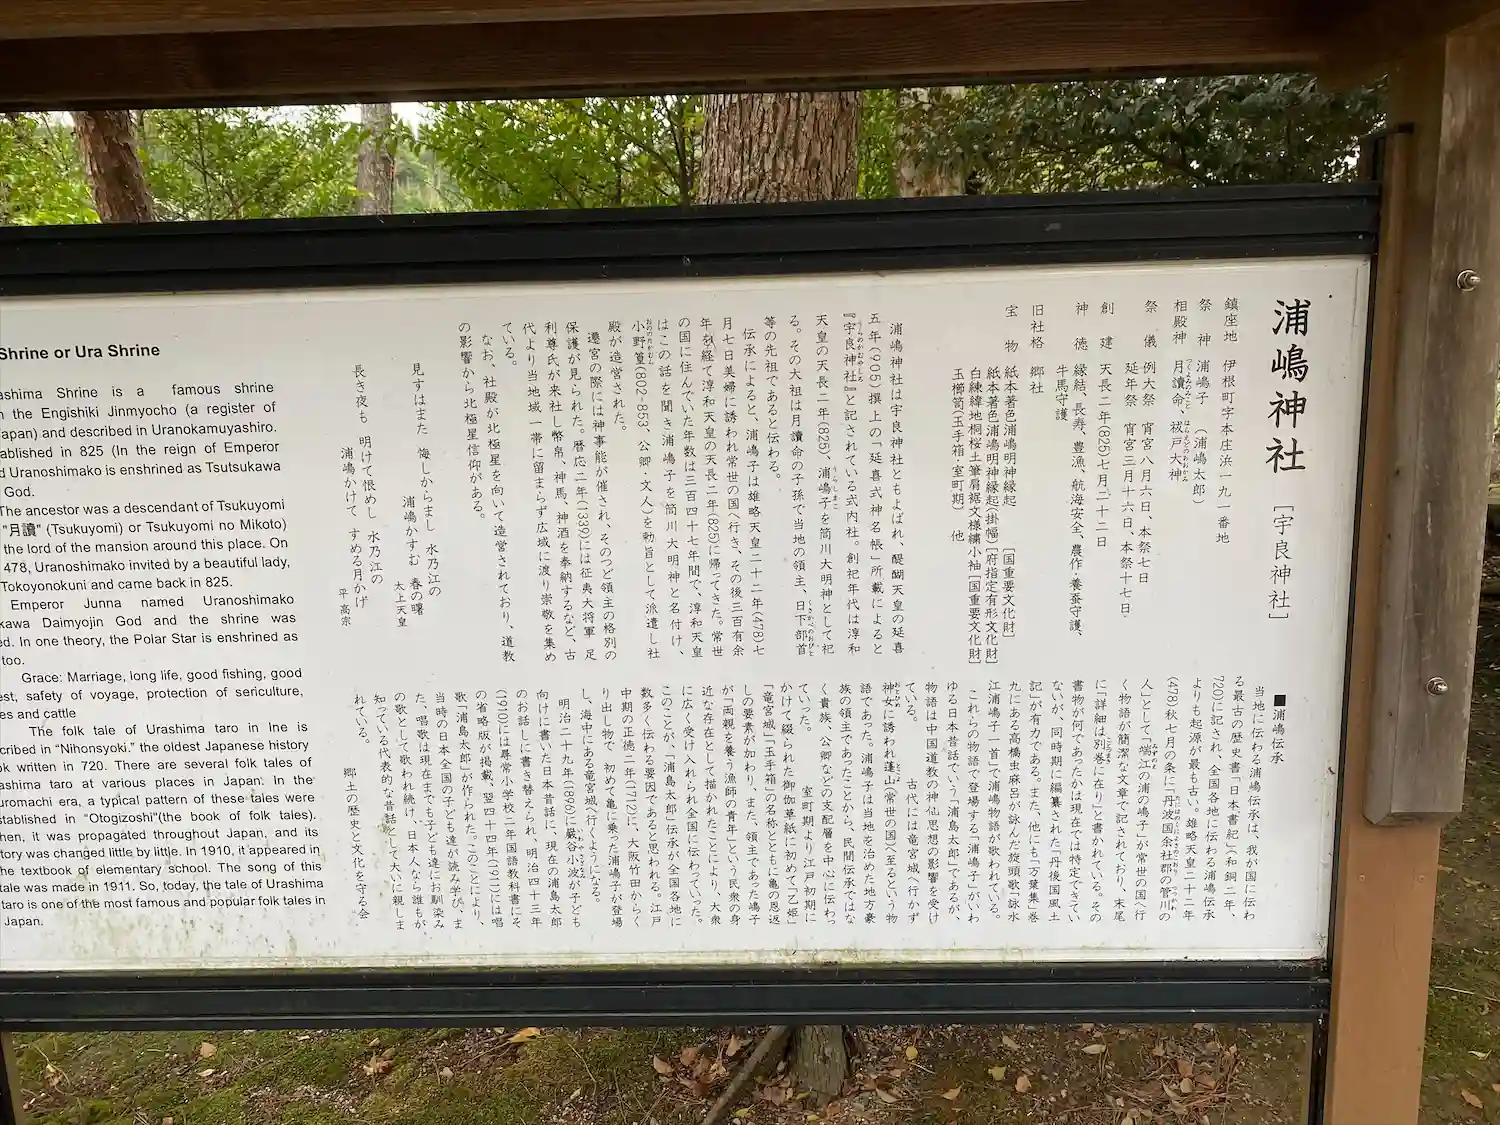 浦嶋神社 [宇良神社]
鎮座地 伊根町字本庄浜一九一番地
祭神 浦嶋子 (浦嶋太郎)
相殿神 月讀命、祓戸大神
祭儀 例大祭 宵宮八月六日、本祭七日
延年祭 宵宮三月十六日、本祭十七日
創建 天長二年(825)七月二十二日
神徳 縁結、長寿、豊漁、航海安全、農作・養蚕守護、
牛馬守護
旧社格 郷社
宝物 紙本著色浦嶋明神縁起 [国重要文化財]
紙本著色浦嶋明神縁起(掛幅)[府指定有形文化財]
白練緯地桐桜土筆肩裾文様繍小袖[国重要文化財]
玉櫛笥(玉手箱・室町期) 他
浦嶋神社は宇良神社ともよばれ、醍醐天皇の延喜
五年(905)撰上の「延喜式神名帳」所載によると
『宇良神社』と記されている式内社。創祀年代は淳和
天皇の天長二年(825)、浦嶋子を筒川大明神として祀
る。その大祖は月讀命の子孫で当地の領主、日下部首
等の先祖であると伝わる。
伝承によると、浦嶋子は雄略天皇二十二年(478)七
月七日美婦に誘われ常世の国へ行き、その後三百有余
年を経て淳和天皇の天長二年(825)に帰ってきた。常世
の国に住んでいた年数は三百四十七年間で、淳和天皇
はこの話を聞き浦嶋子を筒川大明神と名付け、
小野篁(802-853、公卿・文人)を勅旨として派遣し社
殿が造営された。
遷宮の際には神事能が催され、そのつど領主の格別の
保護が見られた。暦応二年(1339)には征夷大将軍 足
利尊氏が来社し幣帛、神馬、神酒を奉納するなど、古
代より当地域一帯に留まらず広域に渡り崇敬を集め
ている。
なお、社殿が北極星を向いて造営されており、道教
の影響から北極星信仰がある。
見すはまた 悔しからまし 水乃江の
浦嶋かすむ 春の曙
太上天皇
長き夜も 明けて恨めし 水乃江の
浦嶋かけて すめる月かげ
平 高宗
■浦嶋伝承
当地に伝わる浦嶋伝承は、我が国に伝わ
る最古の歴史書「日本書紀」(和銅二年、
720)に記され、全国各地に伝わる浦嶋伝承
よりも起源が最も古い。雄略天皇二十二年
(478)秋七月の条に「丹波国余社郡の管川の
人」として「端江の浦の嶋子」が常世の国へ行
く物語が簡潔な文章で記されており、末尾
に「詳細は別巻に在り」と書かれている。その
書物が何であったかは現在では特定できてい
ないが、同時期に編纂された「丹後国風土
記」が有力である。また、他にも「万葉集」巻
九にある高橋虫麻呂が詠んだ旋頭歌「詠水
江浦嶋子一首」で浦嶋物語が歌われている。
これらの物語で登場する「浦嶋子」がいわ
ゆる日本昔話でいう「浦島太郎」であるが、
物語は中国道教の神仙思想の影響を受け
ている。 古代には竜宮城へ行かず
神女に誘われ蓬山(常世の国)へ至るという物
語であった。浦嶋子は当地を治めた地方豪
族の領主であったことから、民間伝承ではな
く貴族、公卿などの支配層を中心に伝わっ
ていった。 室町期より江戸初期に
かけて綴られた御伽草紙に初めて「乙姫」
「竜宮城」「玉手箱」の名称とともに亀の恩返
しの要素が加わり、また、領主であった嶋子
が「両親を養う漁師の青年」という民衆の身
近な存在として描かれたことにより、大衆
に広く受け入れられ全国に伝わっていった。
このことが、「浦島太郎」伝承が全国各地に
数多く伝わる要因であると思われる。江戸
中期の正徳二年(1712)に、大阪竹田からく
り出し物で、初めて亀に乗った浦嶋子が登場
し、海中にある竜宮城へ行くようになる。
明治二十九年(1896)に巌谷小波が子ども
向けに書いた日本昔話に、現在の浦島太郎
のお話しに書き替えられ、明治四十三年
(1910)には尋常小学校二年国語教科書にそ
の省略版が掲載、翌四十四年(1911)には唱
歌「浦島太郎」が作られた。このことにより、
当時の日本全国の子ども達が読み学び、ま
た、唱歌は現在までも子ども達にお馴染み
の歌として歌われ続け、日本人なら誰もが
知っている代表的な昔話として大いに親しま
れている。
郷土の歴史と文化を守る会
Shrine or Ura Shrine
ashima Shrine is a famous shrine
n the Engishiki Jinmyocho (a register of
apan) and described in Uranokamuyashiro.
ablished in 825 (In the reign of Emperor
d Uranoshimako is enshrined as Tsutsukawa
God.
The ancestor was a descendant of Tsukuyomi
"月讀" (Tsukuyomi) or Tsukuyomi no Mikoto)
the lord of the mansion around this place. On
478, Uranoshimako invited by a beautiful lady,
Tokoyonokuni and came back in 825.
Emperor Junna named Uranoshimako
kawa Daimyojin God and the shrine was
ed. In one theory, the Polar Star is enshrined as
too.
Grace: Marriage, long life, good fishing, good
est, safety of voyage, protection of sericulture,
es and cattle
The folk tale of Urashima taro in Ine is
cribed in "Nihonsyoki." the oldest Japanese history
ok written in 720. There are several folk tales of
ashima taro at various places in Japan. In the
uromachi era, a typical pattern of these tales were
stablished in "Otogizoshi"(the book of folk tales).
hen, it was propagated throughout Japan, and its
tory was changed little by little. In 1910, it appeared in
he textbook of elementary school. The song of this
tale was made in 1911. So, today, the tale of Urashima
taro is one of the most famous and popular folk tales in
Japan.